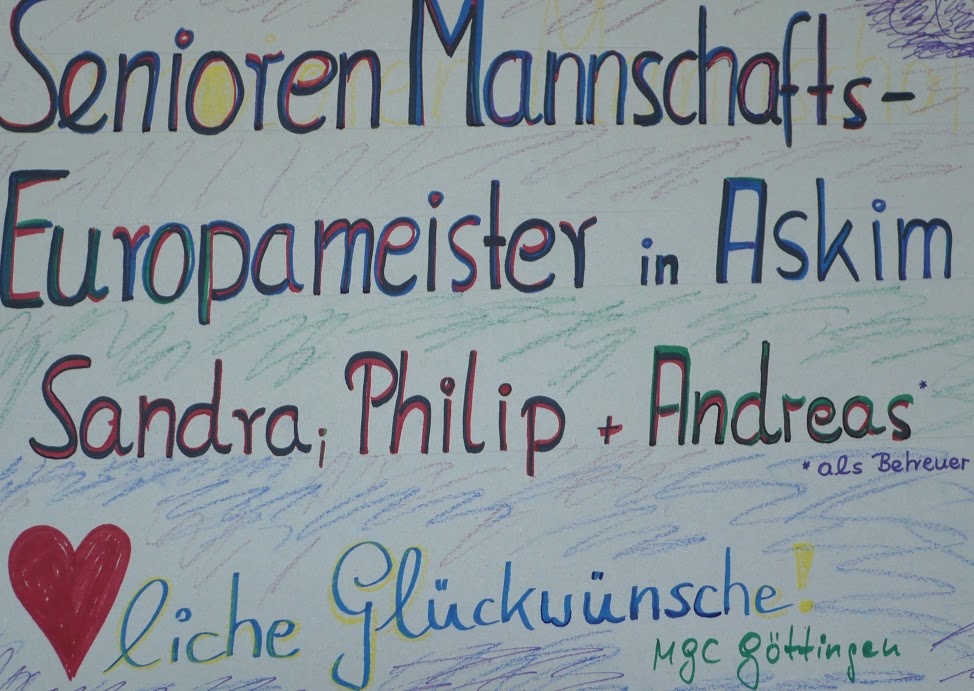 Senioren Mannschafts-
Europameister in Askim
Sandra, Philip + Andreas*
*als Betreuer
liche Glückwünsche!
MGC Göttingen